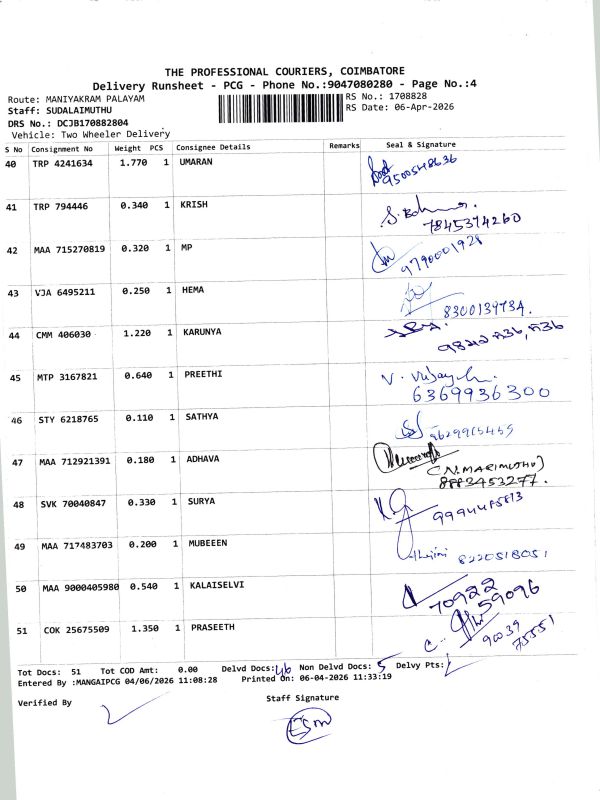 THE PROFESSIONAL COURIERS, COIMBATORE
Delivery Runsheet - PCG - Phone No.:9047080280 - Page No.:4
Route: MANIYAKRAM PALAYAM RS No.: 1708828
Staff: SUDALAIMUTHU RS Date: 06-Apr-2026
DRS No.: DCJB170882804
Vehicle: Two Wheeler Delivery
S No Consignment No Weight PCS Consignee Details Remarks Seal & Signature
40 TRP 4241634 1.770 1 UMARAN 9500548636
41 TRP 794446 0.340 1 KRISH 7845374260
42 MAA 715270819 0.320 1 MP 9790001928
43 VJA 6495211 0.250 1 HEMA 8300139734.
44 CMM 406030 1.220 1 KARUNYA
45 MTP 3167821 0.640 1 PREETHI 6369936300
46 STY 6218765 0.110 1 SATHYA
47 MAA 712921391 0.180 1 ADHAVA (N.MARIMUTHU)
8883453277.
48 SVK 70040847 0.330 1 SURYA
49 MAA 717483703 0.200 1 MUBEEEN 8220518051
50 MAA 9000405980 0.540 1 KALAISELVI 70922
59096
51 COK 25675509 1.350 1 PRASEETH 90039
75551
Tot Docs: 51 Tot COD Amt: 0.00 Delvd Docs: 46 Non Delvd Docs: 5 Delvy Pts:
Entered By :MANGAIPCG 04/06/2026 11:08:28 Printed On: 06-04-2026 11:33:19
Verified By Staff Signature
ESM